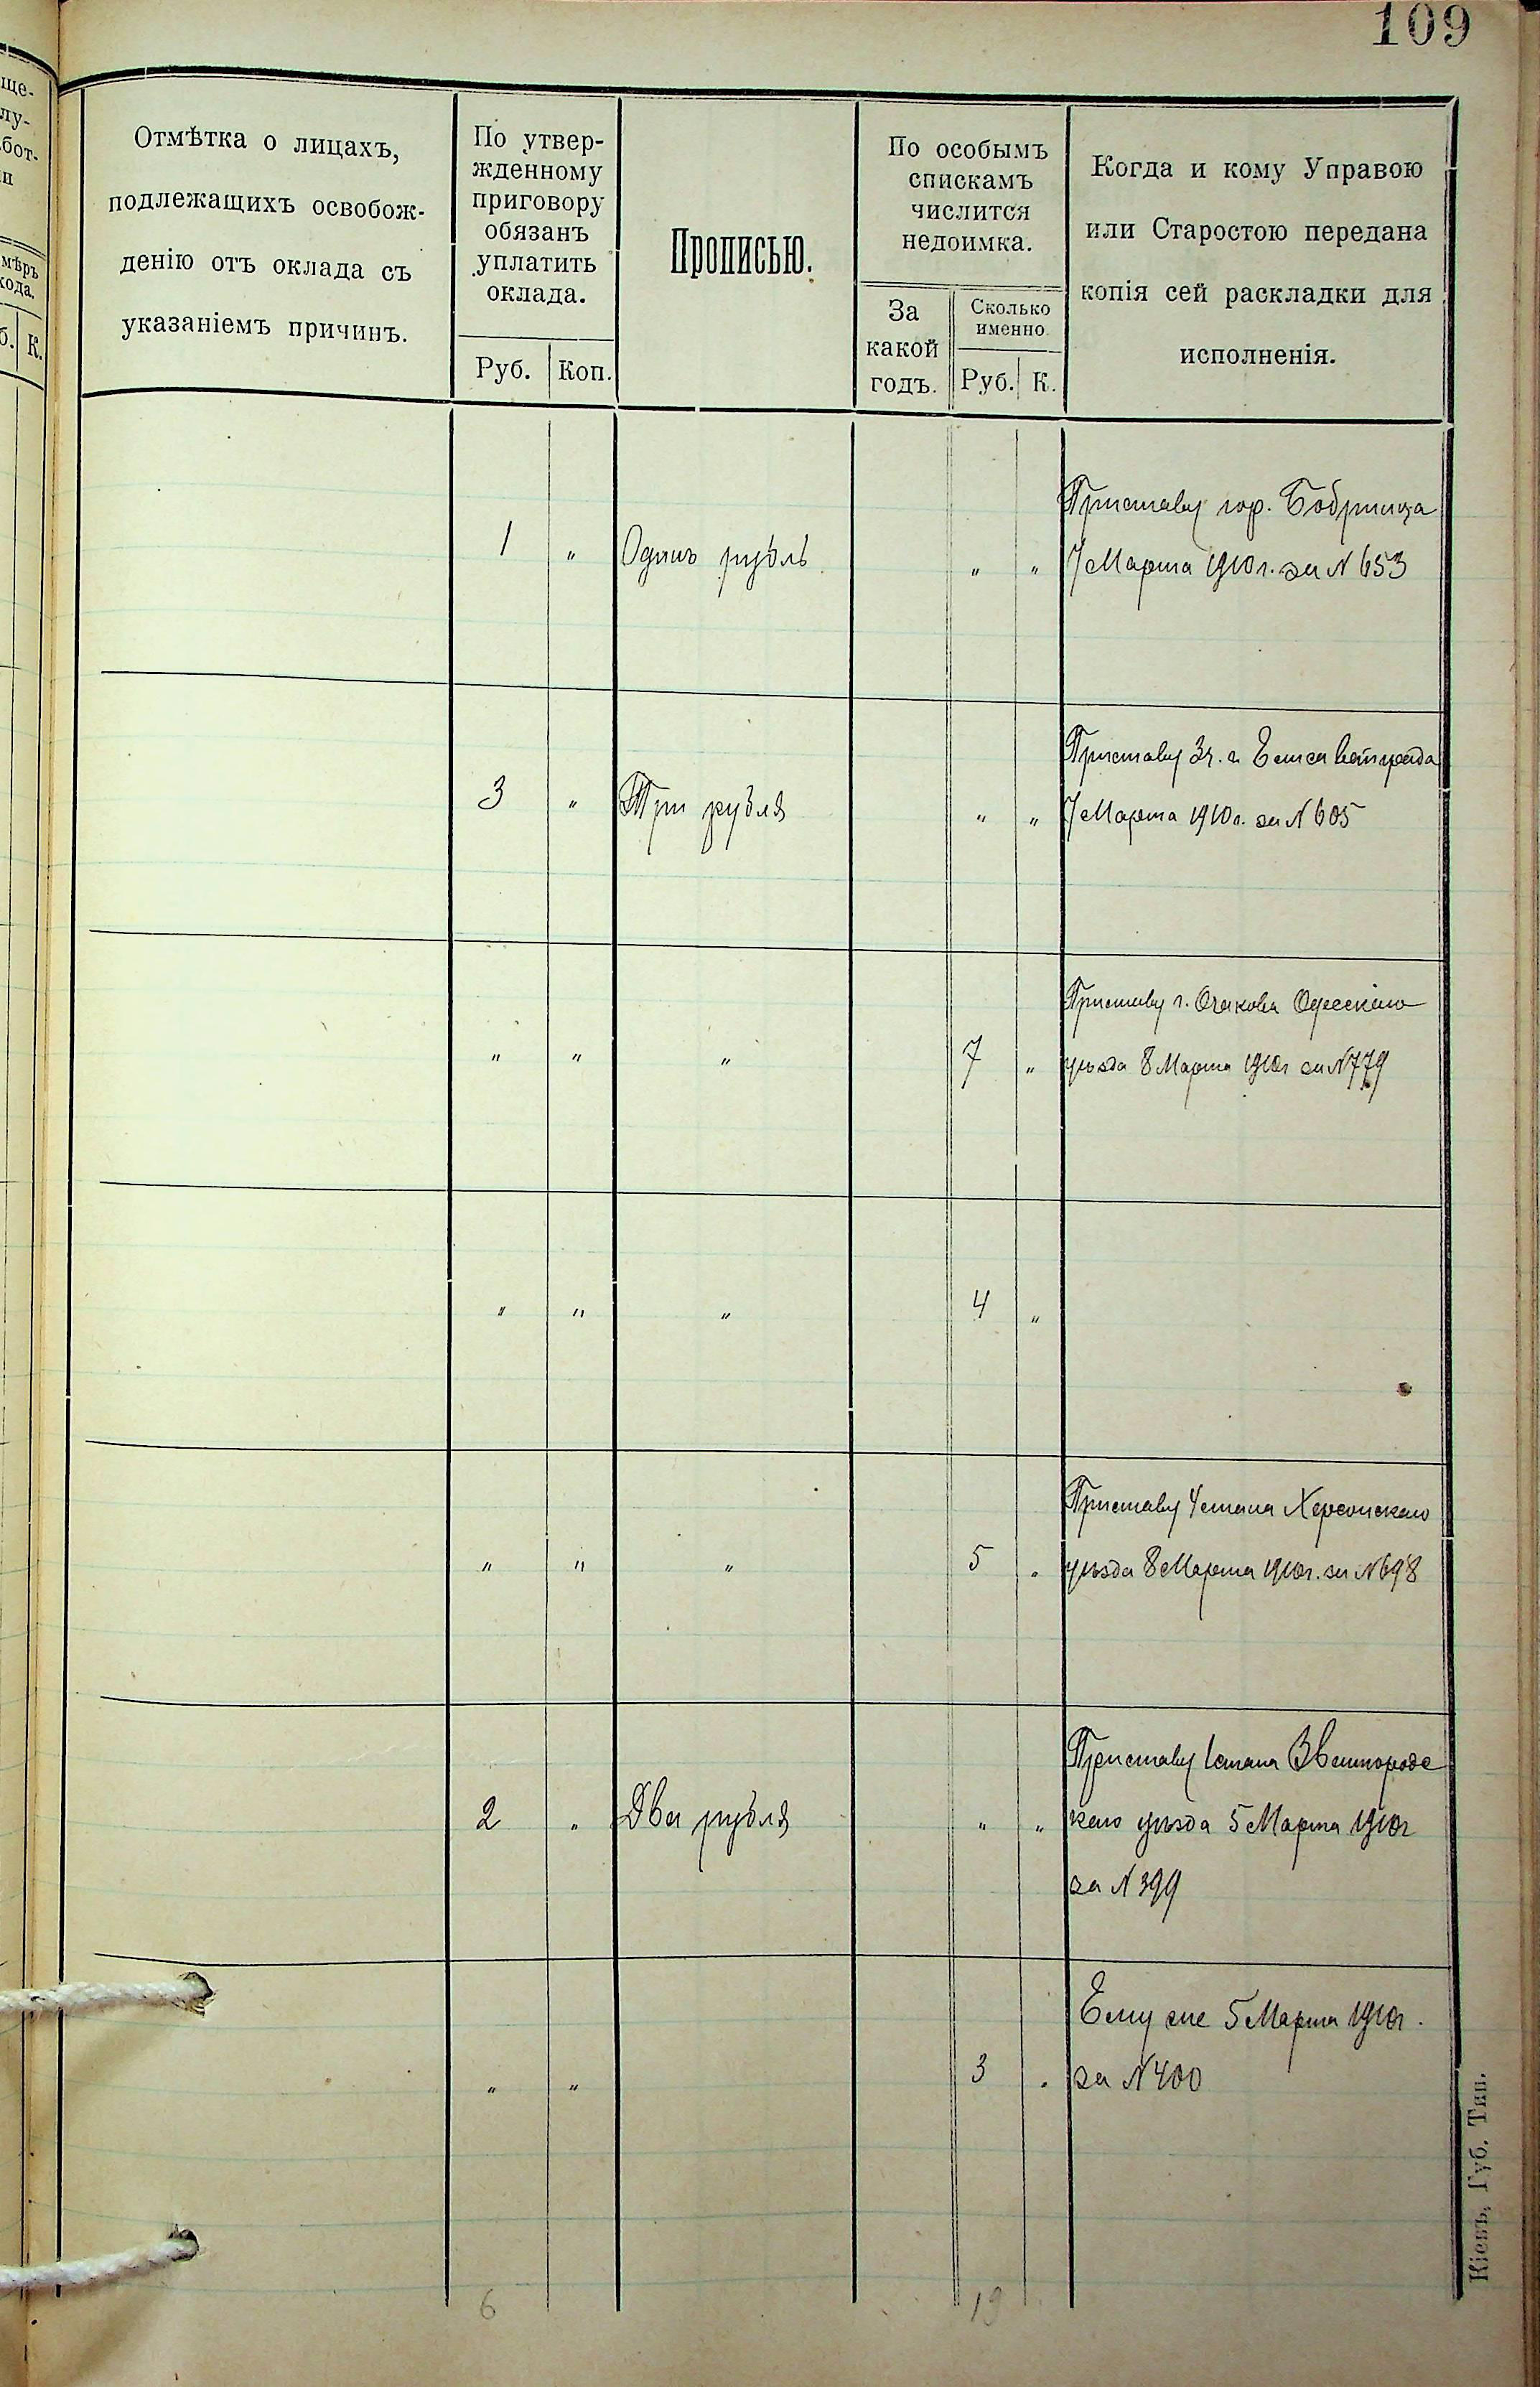 109
Отмѣтка о лицахъ,
подлежащихъ освобож-
денію отъ оклада съ
указаніемъ причинъ.
По утвер-
жденному
приговору
обязанъ
уплатить
оклада.
Руб. Коп.
Прописью.
По особымъ
спискамъ
числится
недоимка.
За
какой
годъ.
Сколько
именно.
Руб. К.
Когда и кому Управою
или Старостою передана
копія сей раскладки для
исполненія.
Приставу гор. Бобринца
1 " Одинъ рубль " " 7 Марта 1910 г. за N 653
Приставу 3 ч. г. Елисаветграда
3 " Три рубля " " 7 Марта 1910 г. за N 605
Приставу г. Очакова Одесскаго
" " " 7 " уѣзда 8 Марта 1910 г за N 779
" " " 4 "
Приставу 4 стана Херсонскаго
" " " 5 " уѣзда 8 Марта 1910 г. за N 698
Приставу 1 стана Звенигородс
2 " Два рубля " " каго уѣзда 5 Марта 1910 г
за N 399
Ему же 5 Марта 1910 г.
" " 3 " за N 400
6 19
Кіевъ, Губ. Тип.
ще-
лу-
бот-
и
мѣръ
хода.
б. К.